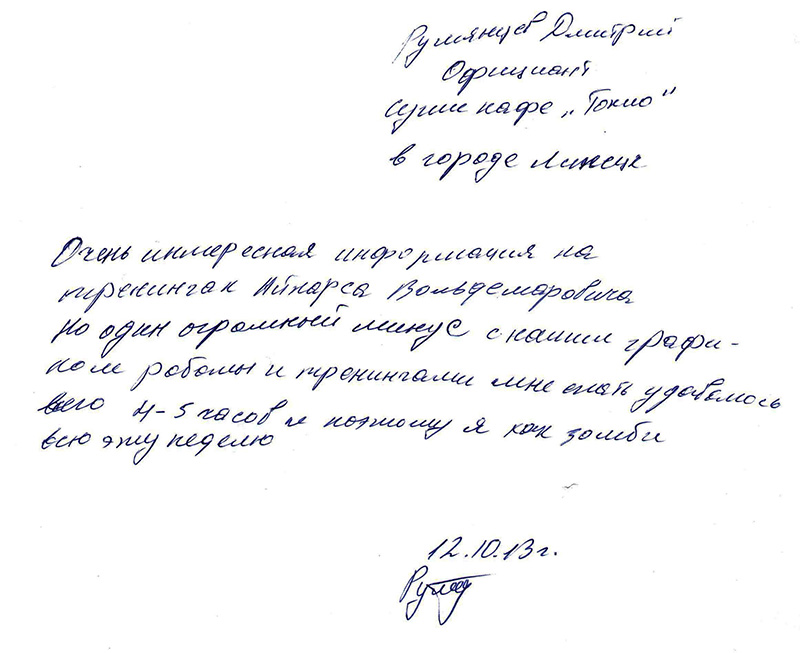 Румянцев Дмитрий
Официант
Суши кафе „Токио"
в городе Липецк
Очень интересная информация на
тренингах Айнарса Вольдемаровича
но один огромный минус с нашим графи-
ком работы и тренингами мне спать удавалось
всего 4-5 часов и поэтому я как зомби
всю эту неделю
12.10.13г.